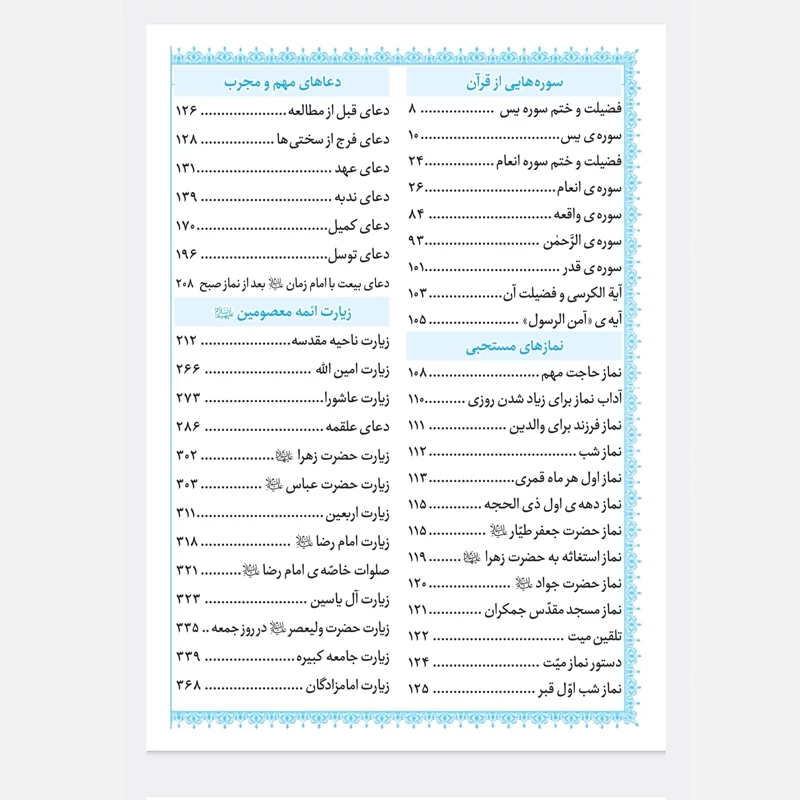 سوره‌هایی از قرآن
فضیلت و ختم سوره یس .................. ۸
سوره‌ی یس..................................۱۰
فضیلت و ختم سوره انعام .................۲۴
سوره‌ی انعام................................۲۶
سوره‌ی واقعه .............................. ۸۴
سوره‌ی الرَّحمٰن ............................۹۳
سوره‌ی قدر .................................۱۰۱
آیة الکرسی و فضیلت آن..................۱۰۳
آیه‌ی «آمن الرسول» ...................... ۱۰۵
نمازهای مستحبی
نماز حاجت مهم...........................۱۰۸
آداب نماز برای زیاد شدن روزی ..........۱۱۰
نماز فرزند برای والدین ................... ۱۱۱
نماز شب ................................... ۱۱۲
نماز اول هر ماه قمری.....................۱۱۳
نماز دهه‌ی اول ذی الحجه ............. ۱۱۵
نماز حضرت جعفر طیّار ............. ۱۱۵
نماز استغاثه به حضرت زهرا ......... ۱۱۹
نماز حضرت جواد .................... ۱۲۰
نماز مسجد مقدّس جمکران .............۱۲۱
تلقین میت ................................ ۱۲۲
دستور نماز میّت .......................... ۱۲۴
نماز شب اوّل قبر ......................... ۱۲۵
دعاهای مهم و مجرب
دعای قبل از مطالعه..................... ۱۲۶
دعای فرج از سختی‌ها .................. ۱۲۸
دعای عهد .................................۱۳۱
دعای ندبه ................................ ۱۳۹
دعای کمیل................................۱۷۰
دعای توسل............................... ۱۹۶
دعای بیعت با امام زمان بعد از نماز صبح ۲۰۸
زیارت ائمه معصومین
زیارت ناحیه مقدسه...................... ۲۱۲
زیارت امین الله .......................... ۲۶۶
زیارت عاشورا............................. ۲۷۳
دعای علقمه .............................. ۲۸۶
زیارت حضرت زهرا .................. ۳۰۲
زیارت حضرت عباس ............... ۳۰۳
زیارت اربعین...............................۳۱۱
زیارت امام رضا ..................... ۳۱۸
صلوات خاصّه‌ی امام رضا .......... ۳۲۱
زیارت آل یاسین ......................... ۳۲۳
زیارت حضرت ولیعصر در روز جمعه .. ۳۳۵
زیارت جامعه کبیره....................... ۳۳۹
زیارت امامزادگان ........................ ۳۶۸